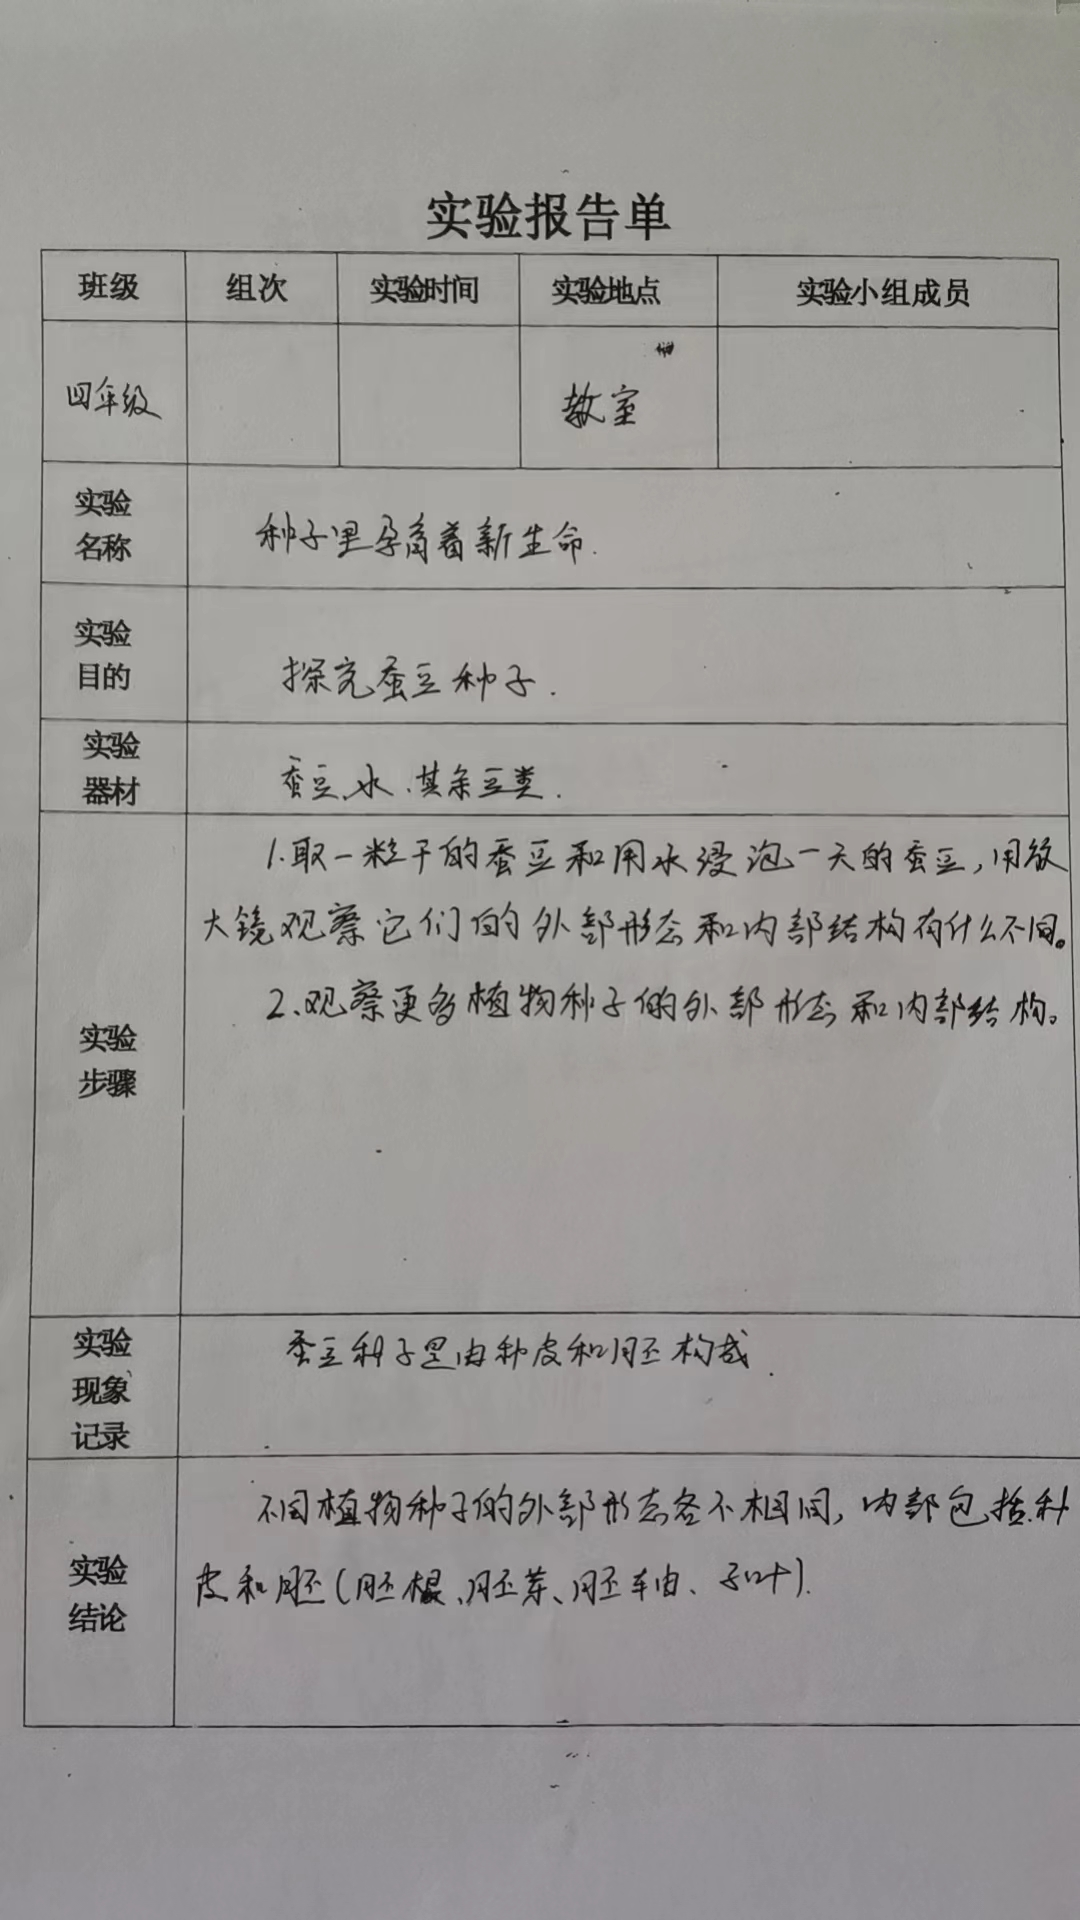 实验报告单
班级 组次 实验时间 实验地点 实验小组成员
四年级 教室
实验
名称
种子里孕育着新生命.
实验
目的
探究蚕豆种子.
实验
器材
蚕豆、水、其余豆类.
实验
步骤
1.取一粒干的蚕豆和用水浸泡一天的蚕豆,用放
大镜观察它们的外部形态和内部结构有什么不同。
2.观察更多植物种子的外部形态和内部结构。
实验
现象
记录
蚕豆种子里由种皮和胚构成.
实验
结论
不同植物种子的外部形态各不相同,内部包括种
皮和胚(胚根、胚芽、胚轴、子叶).